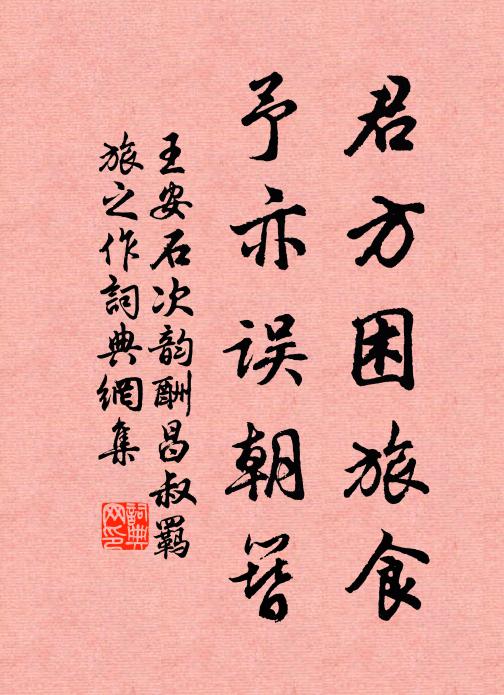 君方困旅食
予亦误朝簪
王安石次韵酬昌叔羁
旅之作詞典網集
詞典
网印